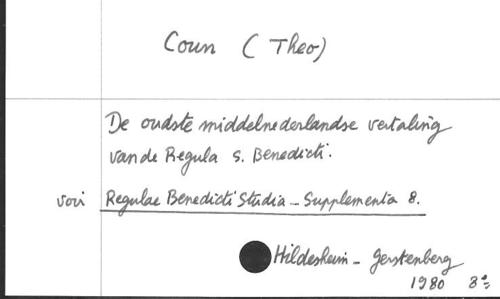 Coun (Theo)
De oudste middelnederlandse vertaling
van de Regula S. Benedicti.
voir Regulae Benedicti Studia - Supplementa 8.
Hildesheim - Gerstenberg
1980 8°